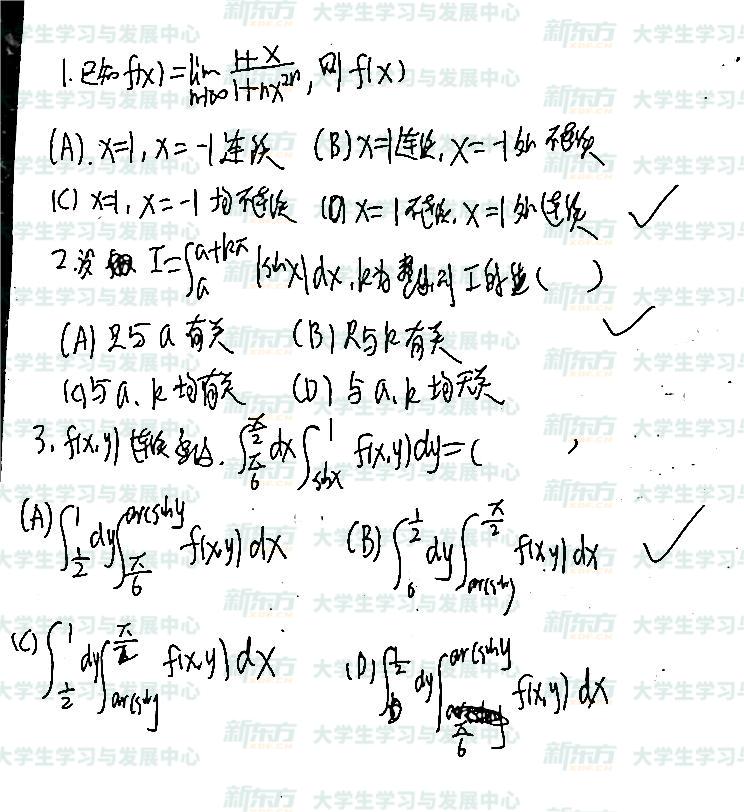 1. 已知 f(x) = lim n→∞ (1+x)/(1+nx^{2n}), 则 f(x)
(A). x=1, x=-1连续 (B) x=1连续, x=-1处不连续
(C) x=1, x=-1 均不连续 (D) x=1不连续, x=1处连续 ✓
2. 设 I=∫_a^{a+kπ} |sinx| dx, k为整数, 则 I的值 ( )
(A) 只与 a 有关 (B) 只与 k 有关 ✓
(C) 与 a、k 均有关 (D) 与 a、k 均无关
3. f(x,y) 连续函数. ∫_{π/6}^{π/2} dx ∫_{sinx}^{1} f(x,y) dy = ( ,
(A) ∫_{1/2}^{1} dy ∫_{π/6}^{arcsiny} f(x,y) dx (B) ∫_{0}^{1/2} dy ∫_{arcsiny}^{π/2} f(x,y) dx ✓
(C) ∫_{1/2}^{1} dy ∫_{arcsiny}^{π/2} f(x,y) dx (D) ∫_{0}^{1/2} dy ∫_{π/6}^{arcsiny} f(x,y) dx
新东方 XDF.CN 大学生学习与发展中心